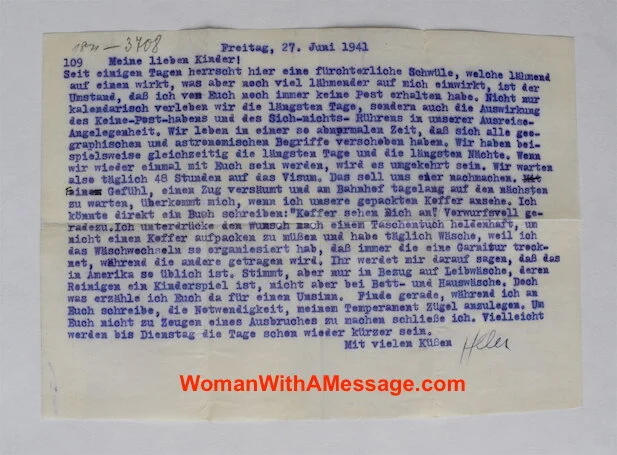 1871 — 3708
Freitag, 27. Juni 1941
109 Meine lieben Kinder!
Seit einigen Tagen herrscht hier eine fürchterliche Schwüle, welche lähmend
auf einen wirkt, was aber noch viel lähmender auf mich einwirkt, ist der
Umstand, daß ich von Euch noch immer keine Post erhalten habe. Nicht nur
kalendarisch verleben wir die längsten Tage, sondern auch die Auswirkung
des Keine-Post-habens und des Sich-nichts- Rührens in unserer Ausreise-
Angelegenheit. Wir leben in einer so abnormalen Zeit, daß sich alle geo-
graphischen und astronomischen Begriffe verschoben haben. Wir haben bei-
spielsweise gleichzeitig die längsten Tage und die längsten Nächte. Wenn
wir wieder einmal mit Euch sein werden, wird es umgekehrt sein. Wir warten
also täglich 48 Stunden auf das Visum. Das soll uns einer nachmachen. Mit
einem Gefühl, einen Zug versäumt und am Bahnhof tagelang auf den nächsten
zu warten, überkommt mich, wenn ich unsere gepackten Koffer ansehe. Ich
könnte direkt ein Buch schreiben: "Koffer sehen Dich an" Vorwurfsvoll ge-
radezu. Ich unterdrücke den Wunsch nach einem Taschentuch heldenhaft, um
nicht einen Koffer aufpacken zu müßen und habe täglich Wäsche, weil ich
das Wäschwechseln so organisiert hab, daß immer die eine Garnitur trock-
net, während die andere getragen wird. Ihr werdet mir darauf sagen, daß das
in Amerika so üblich ist. Stimmt, aber nur in Bezug auf Leibwäsche, deren
Reinigen ein Kinderspiel ist, nicht aber bei Bett- und Hauswäsche. Doch
was erzähle ich Euch da für einen Umsinn. Finde gerade, während ich an
Euch schreibe, die Notwendigkeit, meinem Temperament Zügel anzulegen. Um
Euch nicht zu Zeugen eines Ausbruches zu machen schließe ich. Vielleicht
werden bis Dienstag die Tage schon wieder kürzer sein.
Mit vielen Küßen
WomanWithAMessage.com